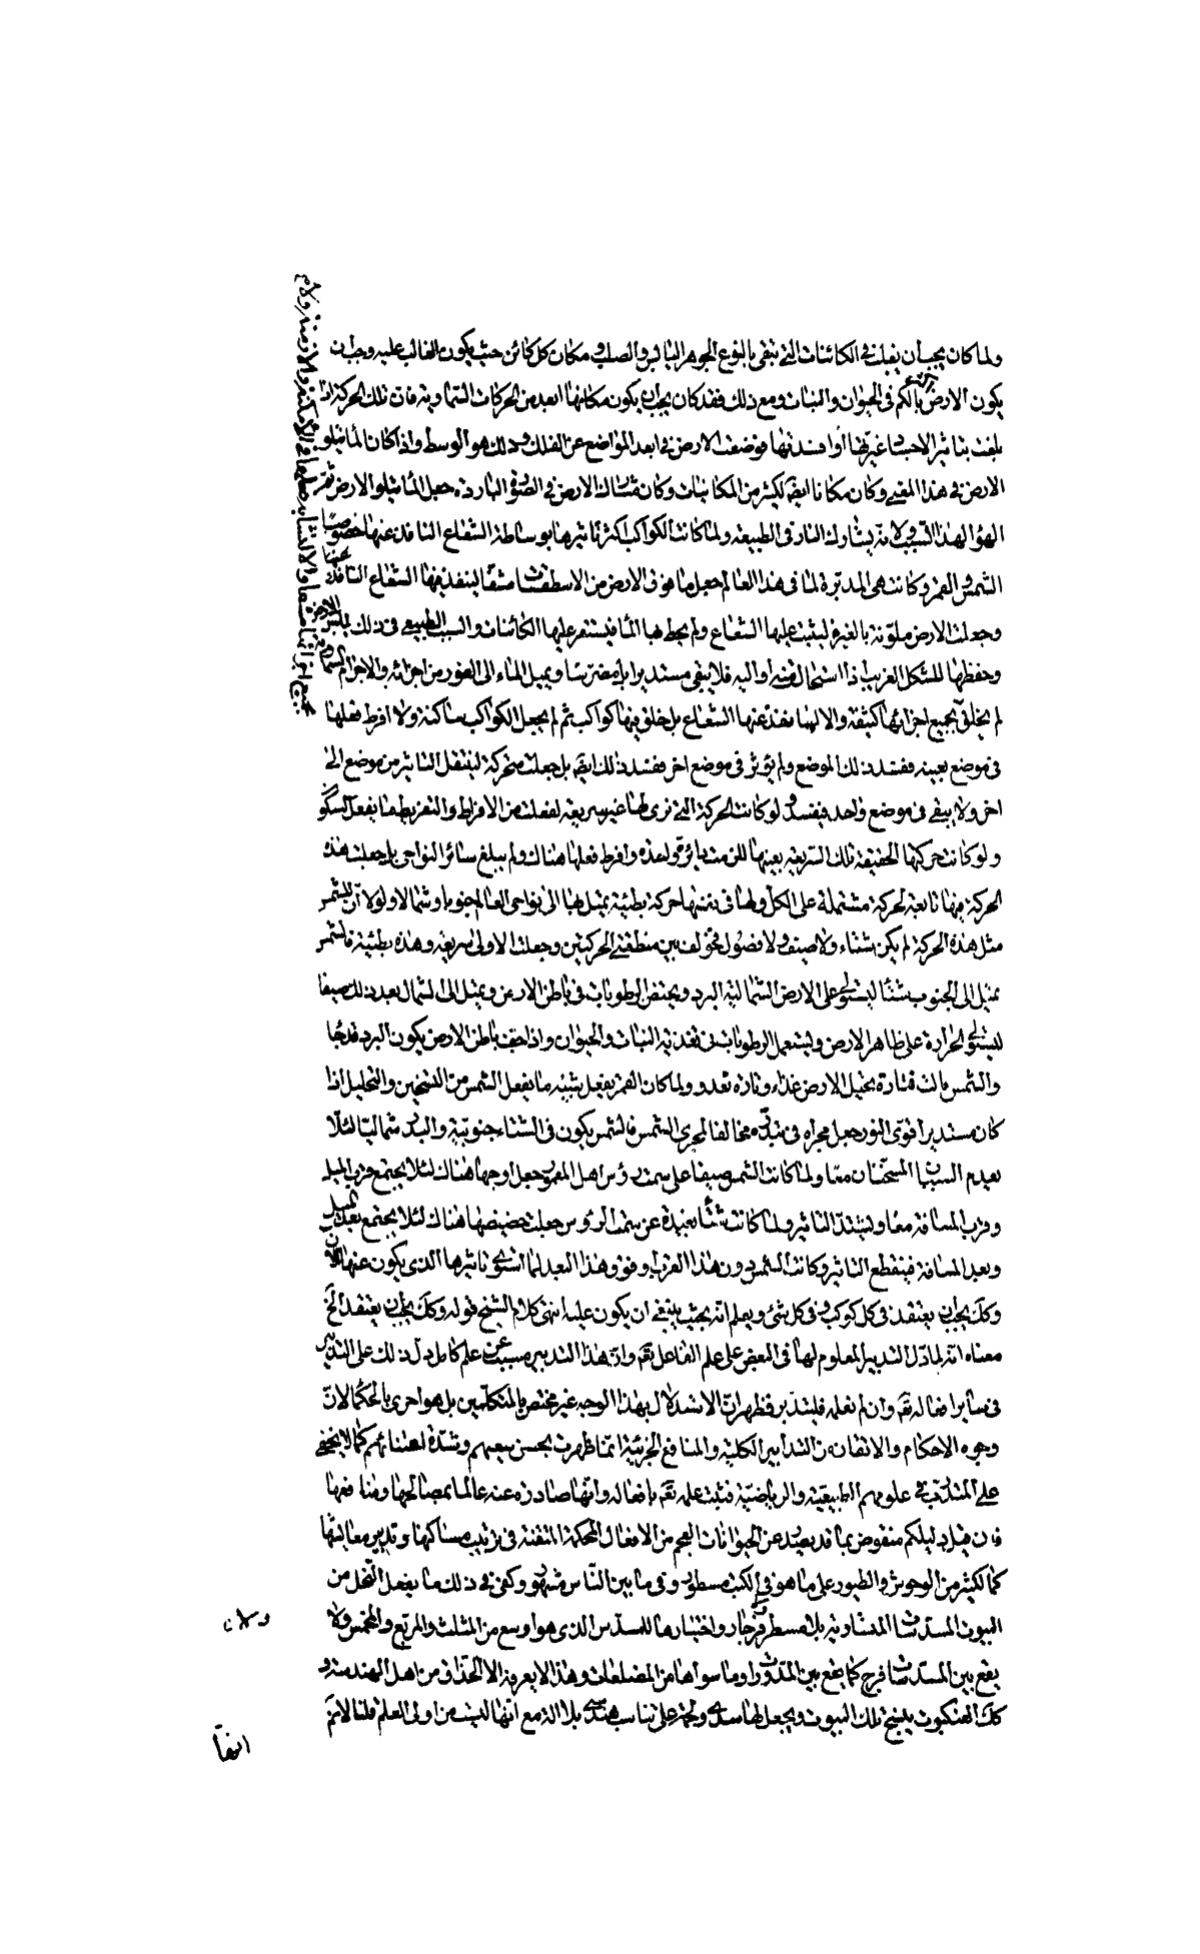 ولما كان يجب أن يغلب فى الكائنات التى تبقى بالنوع الجوهر اليابس والصلب و مكان كل كائن حيث يكون الغالب عليه وجب ان
يكون الارض بالكم فى الحيوان والنبات ومع ذلك فقد كان يجب ان يكون مكانها ابعد من الحركات السماوية فان تلك الحركة اذا
بلغت بتاثير الاجساد غيرتها أو افسدتها فوضعت الارض فى ابعد المواضع عن الفلك وذلك هو الوسط واذا كان الماء يتلو
الارض فى هذا المعنى وكان مكانا ايضا لكثير من الكائنات وكان مشاركا للارض فى الصورة الباردة جعل الماء يتلو الارض ثم
الهواء لهذا السبب ولانه يشارك النار فى الطبيعة ولما كانت الكواكب اكثر تاثيرها بوساطة الشعاع النافذ عنها خصوصا
الشمس والقمر وكانت هى المدبرة لما فى هذا العالم جعل ما فوق الارض من الاسطقسات مشفا لينفذ فيها الشعاع النافذ عنها
وجعلت الارض ملونة بالغبرة ليثبت عليها الشعاع ولم يحط بها الماء فيستقر عليها الكائنات والسبب الطبيعى فى ذلك يبس الارض
وحفظها للشكل الغريب اذا استحال منه او اليه فلا يبقى مستديرا بل مضرسا ويميل الماء الى الغور من اجزائه والاجرام السماوية
لم يخلق بجميع اجزائها كثيفة والا لما نفذ عنها الشعاع بل خلق فيها كواكب ثم لم يجعل الكواكب ساكنة ولا افرط فعلها
فى موضع بعينه ففسد ذلك الموضع ولم يؤثر فى موضع اخر ففسد ذلك ايضا بل جعلت متحركة لينتقل التاثير من موضع الى
اخر ولا يبقى فى موضع واحد فيفسد ولو كانت الحركة التى نرى لها غير سريعة لفعلت من الافراط والتفريط ما يفعل السكون
ولو كانت حركتها الحقيقة تلك السريعة بعينها للزمت دائرة واحدة وافرط فعلها هناك ولم يبلغ سائر النواحى بل جعلت هذه
الحركة فيها تابعة لحركة مشتملة على الكل ولها فى نفسها حركة بطيئة يميل بها الى نواحى العالم جنوبا وشمالا ولولا أن للشمس
مثل هذه الحركة لم يكن شتاء ولا صيف ولا فصول فخولف بين منطقتى الحركتين وجعلت الاولى سريعة وهذه بطيئة فالشمس
يميل الى الجنوب شتاء ليستولى على الارض الشمالية البرد ويحتقن الرطوبات فى باطن الارض ويميل الى الشمال بعد ذلك صيفا
ليستولى الحرارة على ظاهر الارض وليستعمل الرطوبات فى تغذية النبات والحيوان واذا جف باطن الارض يكون البرد قد جاء
والشمس مالت فتارة يحيل الارض غذاء وتارة تغدو ولما كان القمر يفعل شبيه ما يفعل الشمس من التسخين والتحليل اذا
كان مستديرا قوى النور جعل مجراه فى تبدره مخالفا لمجرى الشمس فالشمس يكون فى الشتاء جنوبية والبدر شماليا لئلا
يعدم السببان المسخنان معا ولما كانت الشمس صيفا على سمت رؤس اهل المعمورة جعل اوجها هناك لئلا يجتمع قرب الميل
وقرب المسافة معا ويشتد التاثير ولما كانت شتاء بعيدة عن سمت الرؤس جعلت حضيضها هناك لئلا يجتمع بعد الميل
وبعد المسافة فينقطع التاثير وكانت الشمس دون هذا القرب او فوق هذا البعد لما استوى تاثيرها الذى يكون عنها الآن
وكك يجب ان يعتقد فى كل كوكب وفى كل شئ ويعلم انه بحيث ينبغى ان يكون عليه انتهى كلام الشيخ قوله وكك يجب ان يعتقد الخ
معناه انه لما دل التدبير المعلوم لها فى البعض على علم الفاعل تعم وان هذا التدبير مسبب عن علم كامل دل ذلك على التدبير
فى سائر افعاله تعم وان لم نعلمه فليتدبر فظهر ان الاستدلال بهذا الوجه غير مختص بالمتكلمين بل هو احرى بالحكماء لان
وجوه الاحكام والاتقان من التدابير الكلية والمنافع الجزئية انما ظهرت بحسن سعيهم وشدة اعتنائهم كما لا يخفى
على المتدرب فى علومهم الطبيعية والرياضية فثبت علمه تعم بافعاله وانها صادرة عنه عالما بمصالحها ومنافعها
فان قيل دليلكم منقوض بما قد يصدر عن الحيوانات العجم من الافعال المحكمة المتقنة فى ترتيب مساكنها وتدبير معايشها
كما لكثير من الوحوش والطيور على ما هو فى الكتب مسطور وفى ما بين الناس مشهور وكفى فى ذلك ما يفعل النحل من
البيوت المسدسات المتساوية بلا مسطر وفرجار واختيارها للمسدس الذى هو اوسع من المثلث والمربع والمخمس ولا
يقع بين المسدسات فرج كما يقع بين المدورات وما سواها من المضلعات وهذا لا يعرفه الا الحذاق من اهل الهندسة و
كك العنكبوت ينسج تلك البيوت ويجعل لها سدى ولحمة على تناسب هندسى بلا الة مع انها ليست من اولى العلم قلنا لا نم